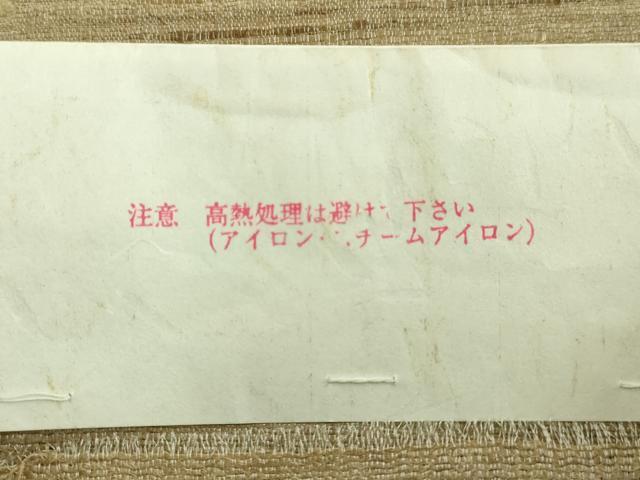 注意 高熱処理は避けて下さい
(アイロン・スチームアイロン)